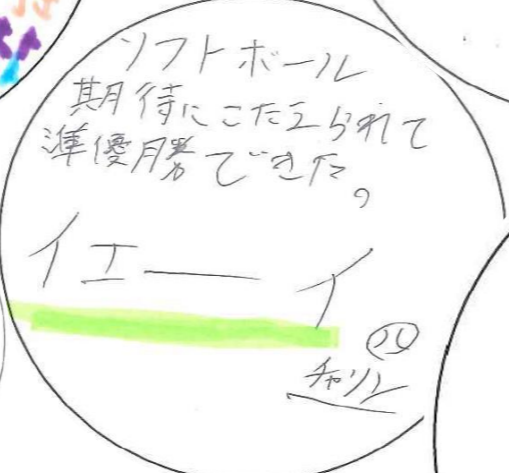 ソフトボール
期待にこたえられて
準優勝できた。
イエーイ
チャリン